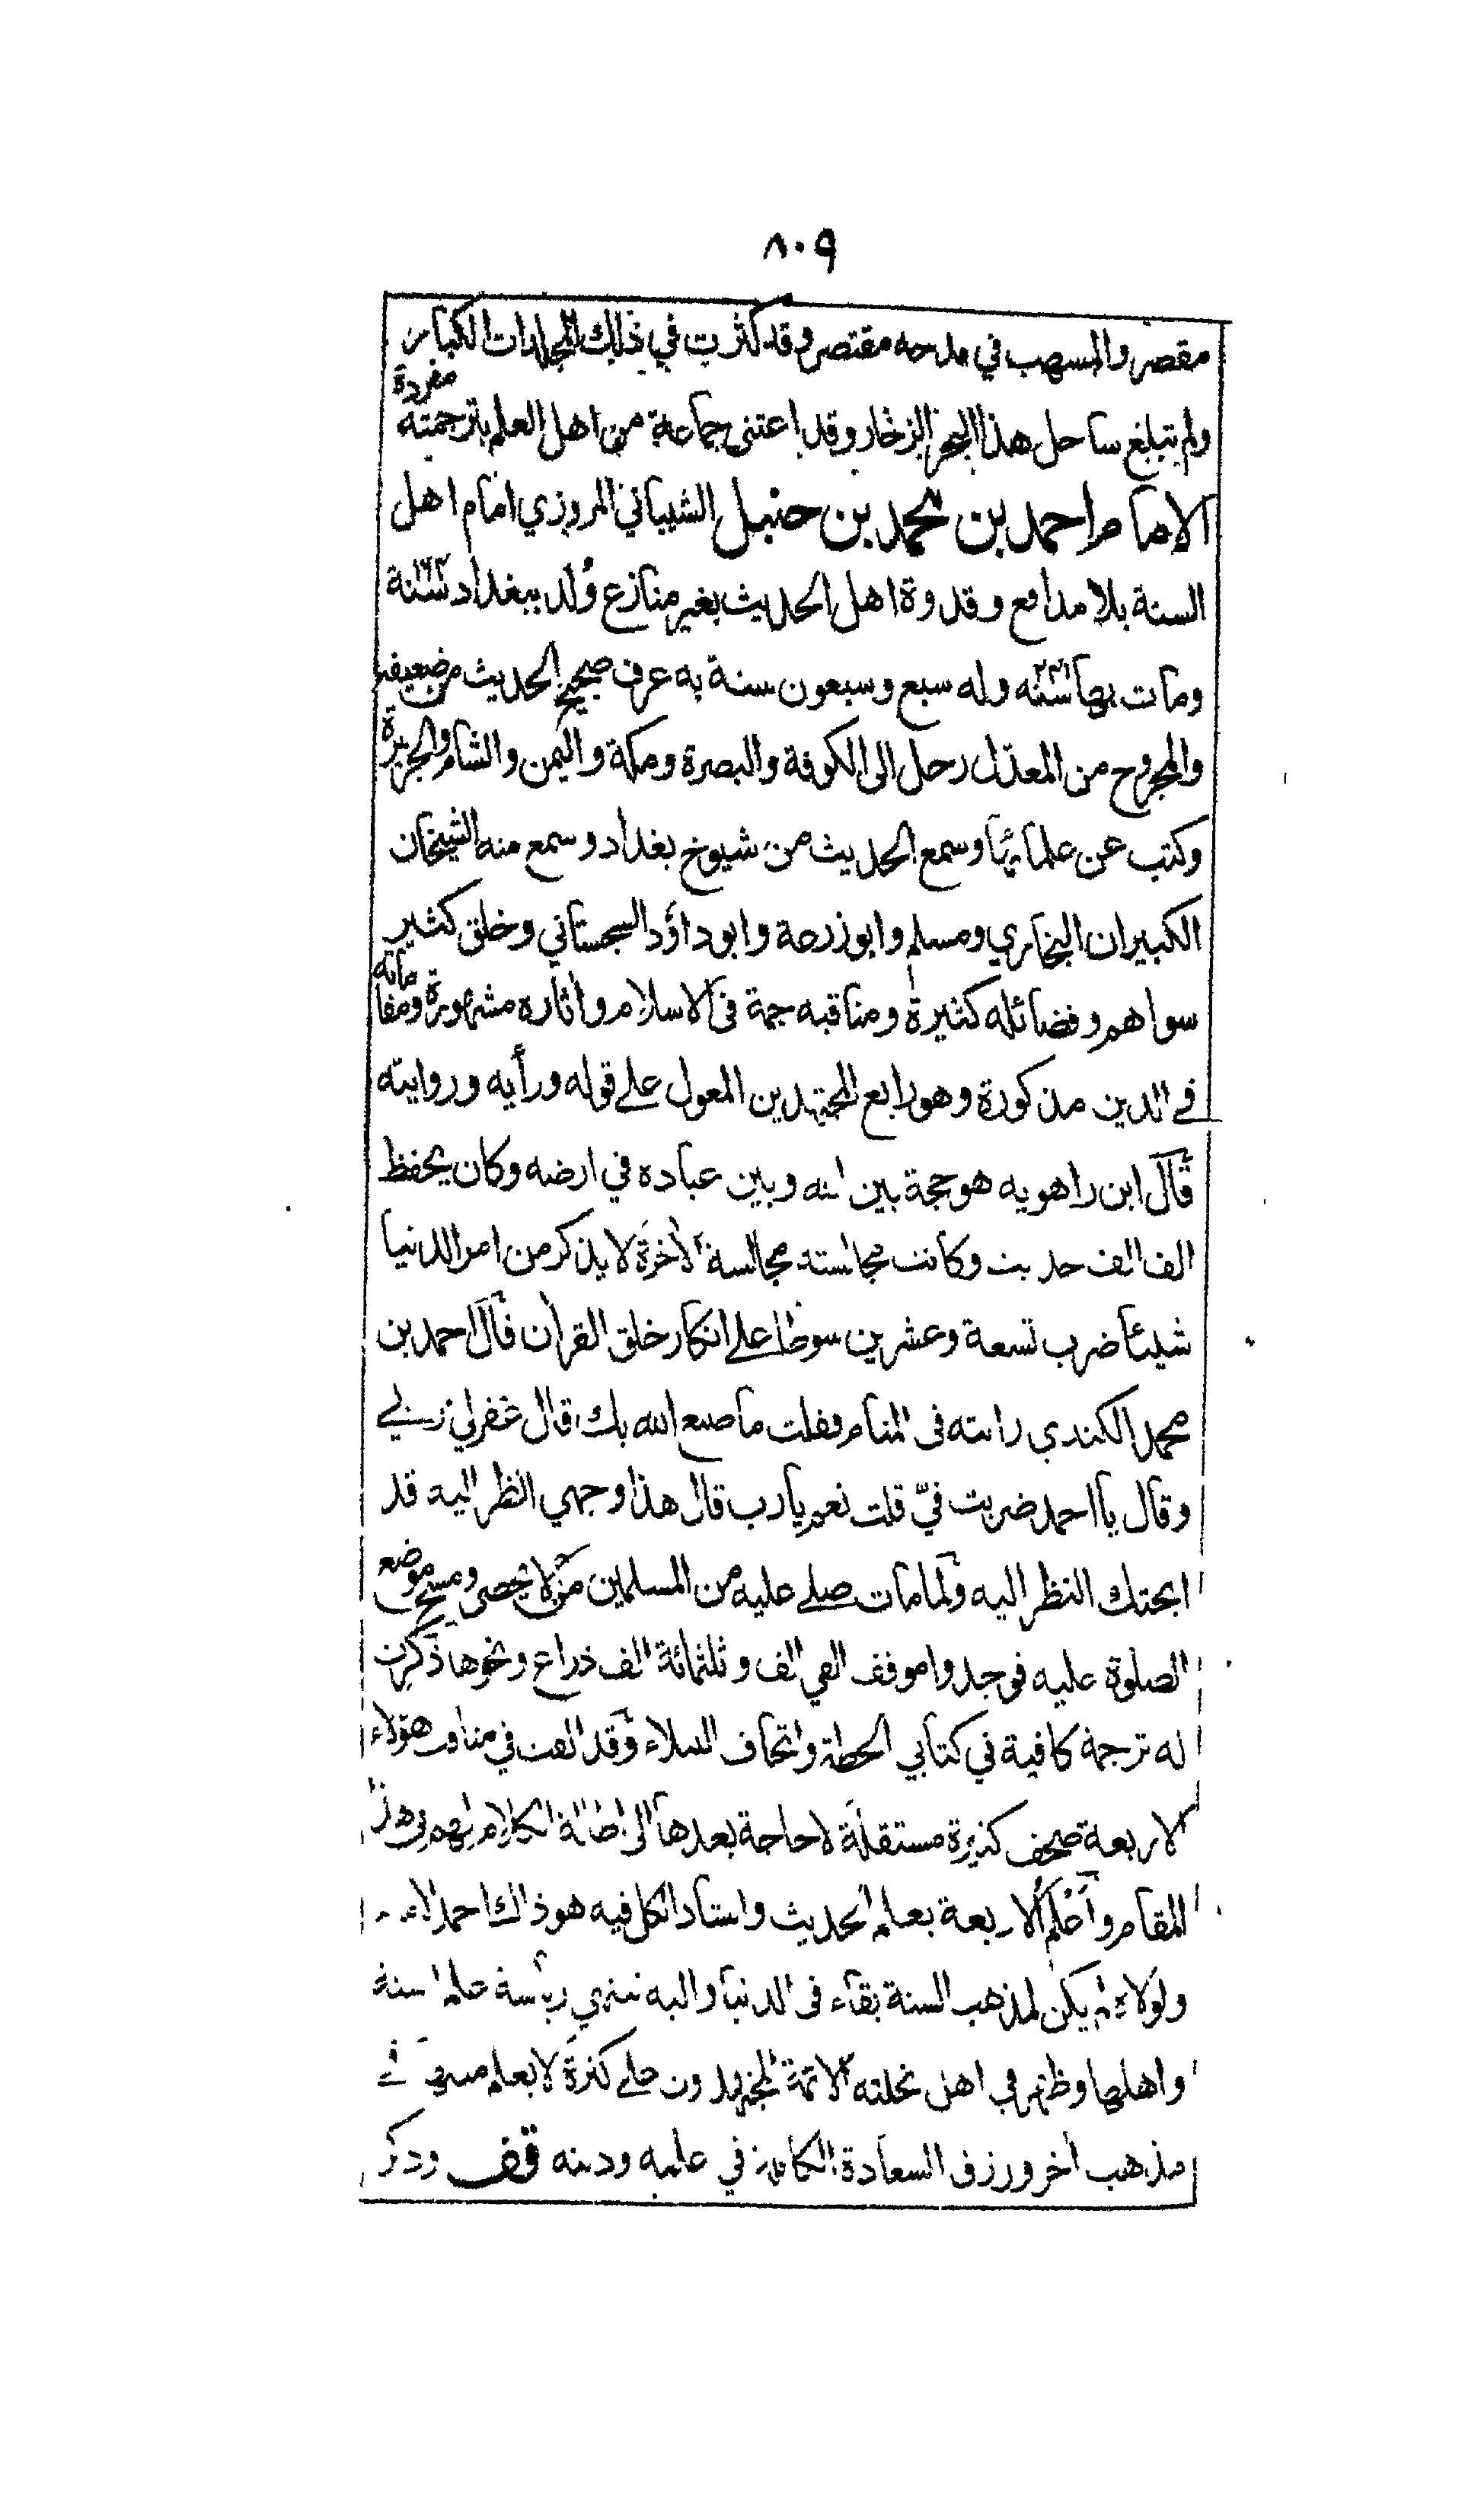 ٨٠٩
مقصر والمسهب في مدحه مقتصر وقد كثرت في ذلك المجلدات الكبار
ولم تبلغ ساحل هذا البحر الزخار وقد اعتنى جماعة من اهل العلم بترجمته مفردة
الامام احمد بن محمد بن حنبل الشيباني المروزي امام اهل
السنة بلا مدافع وقدوة اهل الحديث بغير منازع ولد ببغداد سنة
ومات بها سنة ٢٤١ وله سبع وسبعون سنة به عرف صحيح الحديث من ضعيفه
والمجروح من المعدل رحل الى الكوفة والبصرة ومكة واليمن والشام والجزيرة
وكتب عن علمائها وسمع الحديث من شيوخ بغداد وسمع منه الشيخان
الكبيران البخاري ومسلم وابو زرعة وابو داؤد السجستاني وخلق كثير
سواهم وفضائله كثيرة ومناقبه جمة في الاسلام واثاره مشهورة ومقاماته
في الدين مذكورة وهو رابع المجتهدين المعول على قوله ورأيه وروايته
قال ابن راهويه هو حجة بين الله وبين عباده في ارضه وكان يحفظ
الف الف حديث وكانت مجالسته مجالسة الآخرة لا يذكر من امر الدنيا
شيئا ضرب تسعة وعشرين سوطا على انكار خلق القرآن قال احمد بن
محمد الكندي رايته في المنام فقلت ما صنع الله بك قال غفر لي ربي
وقال يا احمد ضربت فيّ قلت نعم يا رب قال هذا وجهي انظر اليه قد
ابحتك النظر اليه ولما مات صلى عليه من المسلمين من لا يحصى ومسح موضع
الصلوة عليه فوجدوا موقف الفي الف وثلثمائة الف ذراع ونحوها ذكرت
له ترجمة كافية في كتابي الحطة واتحاف النبلاء وقد الفت في مناقب هؤلاء
الاربعة صحف كثيرة مستقلة لا حاجة بعدها الى اطالة الكلام لهم في هذا
المقام واعلم الاربعة بعلم الحديث واستاد الكل فيه هو ذاك احمد
ولولاه لم يكن لمذهب السنة بقاء في الدنيا واليه تنتهي رياسة علم السنة
واهلها وظهر في اهل نحلته الائمة المجتهدون على كثرة لا يعلم مثلها في
مذهب اخر ورزق السعادة الكاملة في علمه ودينه قف وذكر